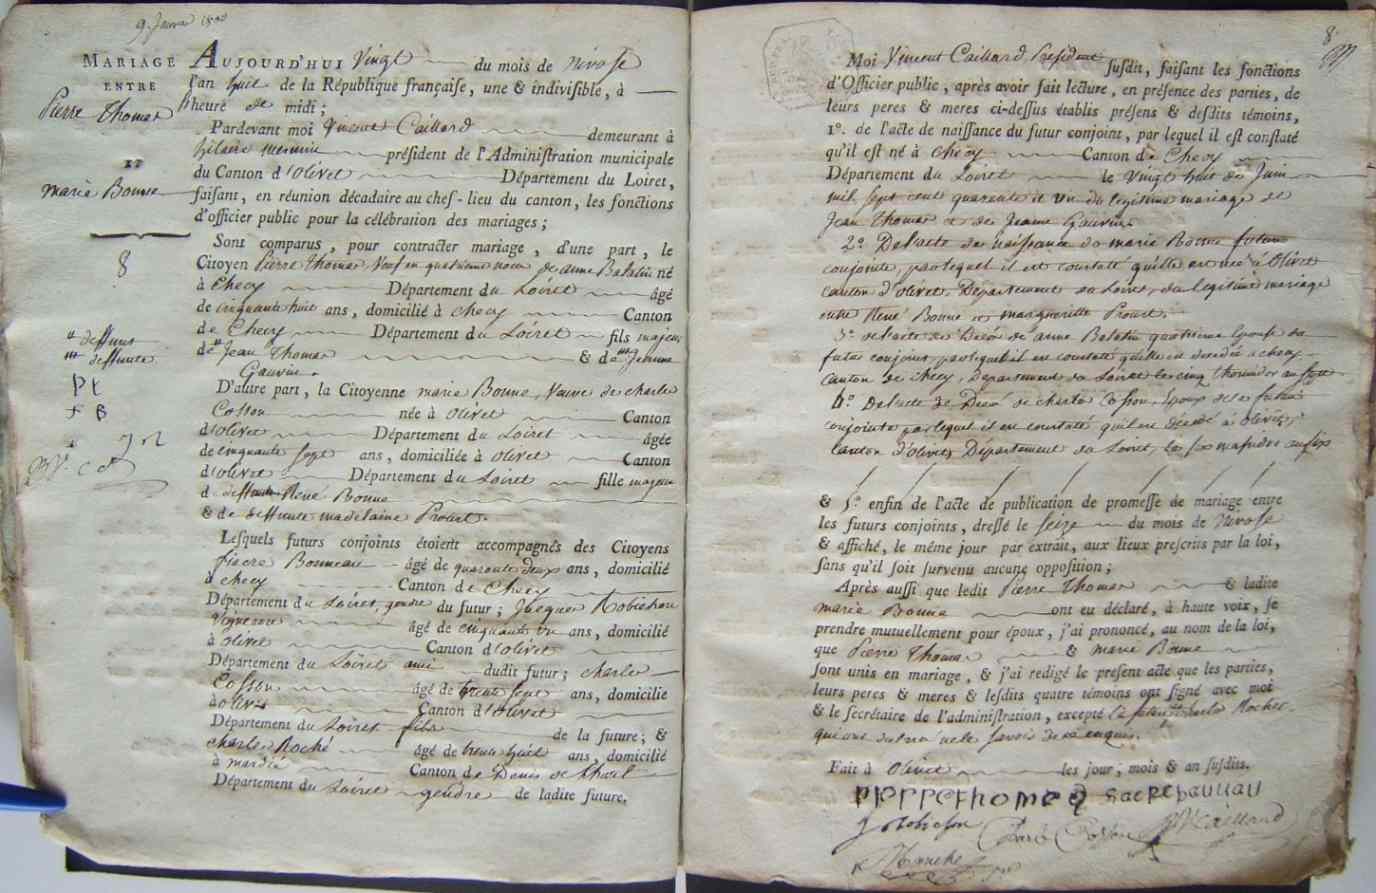 9 Janvier 1800
MARIAGE
ENTRE
Pierre Thomas
ET
marie Bonne
8
# deffunt
## deffunte
Pt
F B
AUJOURD'HUI Vingt du mois de nivose
l'an huit de la République françaiſe, une & indiviſible, à
heure de midi ;
Pardevant moi Vincent Caillard demeurant à
hilaire mesmin préſident de l'Adminiſtration municipale
du Canton d'Olivet Département du Loiret,
faiſant, en réunion décadaire au chef-lieu du canton, les fonctions
d'officier public pour la célébration des mariages ;
Sont comparus, pour contracter mariage, d'une part, le
Citoyen Pierre Thomas, Veuf en quatrieme noce de anne Batalin né
à Checy Département du Loiret âgé
de cinquante huit ans, domicilié à checy Canton
de Checy Département du Loiret fils majeur
de # Jean Thomas & de ## Jeanne
Gauvin.
D'autre part, la Citoyenne marie Bonne, Veuve de charle
Cosson née à Olivet Canton
d'olivet Département du Loiret âgée
de cinquante sept ans, domiciliée à olivet Canton
d'olivet Département du Loiret fille majeur
de deffunt René Bonne
& de deffunte madelaine Proust.
Leſquels futurs conjoints étoient accompagnés des Citoyens
fiacre Bonneau âgé de quarante deux ans, domicilié
à checy Canton de Checy
Département du Loiret, gendre du futur ; Jacques Robichon
Vigneron âgé de cinquante un ans, domicilié
à olivet Canton d'olivet
Département du Loiret ami dudit futur ; charle
Cosson âgé de trente sept ans, domicilié
à olivet Canton d'olivet
Département du Loiret fils de la future ; &
charle Roché âgé de trente huit ans, domicilié
à mardié Canton de Denis de l'hotel
Département du Loiret gendre de ladite future.
8
Moi Vincent Caillard Président ſuſdit, faiſant les fonctions
d'Officier public, après avoir fait lecture, en préſence des parties, de
leurs peres & meres ci-deſſus établis préſens & deſdits témoins,
1°. de l'acte de naiſſance du futur conjoint, par lequel il eſt conſtaté
qu'il eſt né à checy Canton de Checy
Département du Loiret le Vingt huit de Juin
mil sept cent quarante et un du legitime mariage de
Jean Thomas et de Jeanne Gauvin.
2° De l'acte de naissance de marie Bonne future
conjointe, par lequel il est constaté qu'elle est née à Olivet
canton d'olivet, Département du Loiret, du legitime mariage
entre René Bonne et margueritte Proust.
3° de l'acte de Décés de anne Batalin quatrieme Epouse du
futur conjoint, par lequel il est constaté qu'elle est decedée à checy
canton de checy, Département du Loiret le cinq thermidor an sept
4° De l'acte de Décé de charle Cosson, Epoux de la future
conjointe par lequel il est constaté qu'il est décédé à olivet,
canton d'olivet, Département du Loiret, le six messidor an six
& 5° enfin de l'acte de publication de promeſſe de mariage entre
les futurs conjoints, dreſſé le seize du mois de Nivose
& affiché, le même jour par extrait, aux lieux preſcrits par la loi,
ſans qu'il ſoit ſurvenu aucune oppoſition ;
Après auſſi que ledit Pierre Thomas & ladite
marie Bonne ont eu déclaré, à haute voix, ſe
prendre mutuellement pour époux, j'ai prononcé, au nom de la loi,
que Pierre Thomas & marie Bonne
ſont unis en mariage, & j'ai redigé le preſent acte que les parties,
leurs peres & meres & leſdits quatre témoins ont ſigné avec moi
& le ſecrétaire de l'adminiſtration, excepté la future et charle Rocher
qui ont declaré ne le savoir de ce enquis.
Fait à Olivet les jour, mois & an ſuſdits.
pierrethomas fiacrebaunau
J robichon Charle Cosson V Caillard